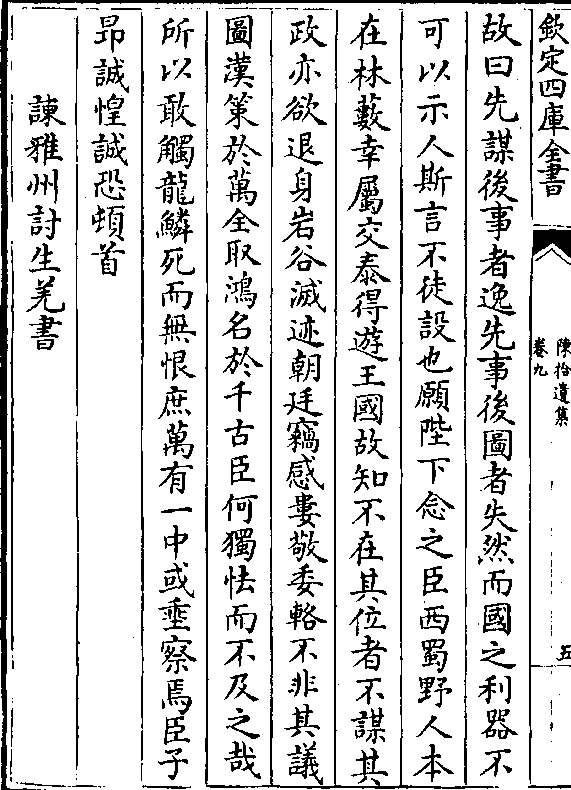 欽定四庫全書
陳拾遺集
卷九
五
故曰先謀後事者逸先事後圖者失然而國之利器不
可以示人斯言不徒設也願陛下念之臣西蜀野人本
在林藪幸屬交泰得遊王國故知不在其位者不謀其
政亦欲退身岩谷滅迹朝廷竊感婁敬委輅不非其議
圖漢策於萬全取鴻名於千古臣何獨怯而不及之哉
所以敢觸龍鱗死而無恨庶萬有一中或垂察焉臣子
昻誠惶誠恐頓首
諫雅州討生羌書